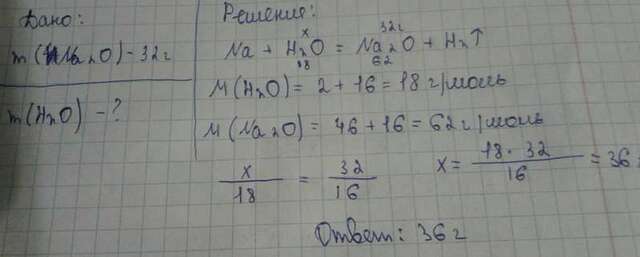 Дано:
m(Na2O) - 32г
m(H2O) - ?
Решение:
x 32г
Na + H2O = Na2O + H2↑
18 62
M(H2O) = 2 + 16 = 18 г/моль
M(Na2O) = 46 + 16 = 62 г/моль
x/18 = 32/16 x = 18 · 32/16 = 36
Ответ: 36 г